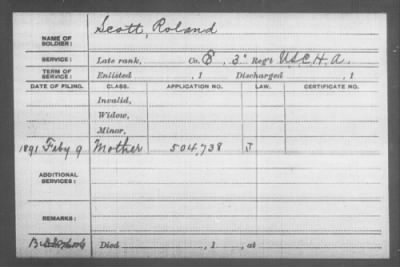 NAME OF SOLDIER: Scott, Roland
SERVICE: Late rank, Co. E, 3" Reg't U.S.C.H.A.
TERM OF SERVICE: Enlisted , 1 Discharged , 1
DATE OF FILING. CLASS. APPLICATION NO. LAW. CERTIFICATE NO.
Invalid,
Widow,
Minor,
1891 Feby 9 Mother 504,738 J
ADDITIONAL SERVICES:
REMARKS:
Died , 1 , at